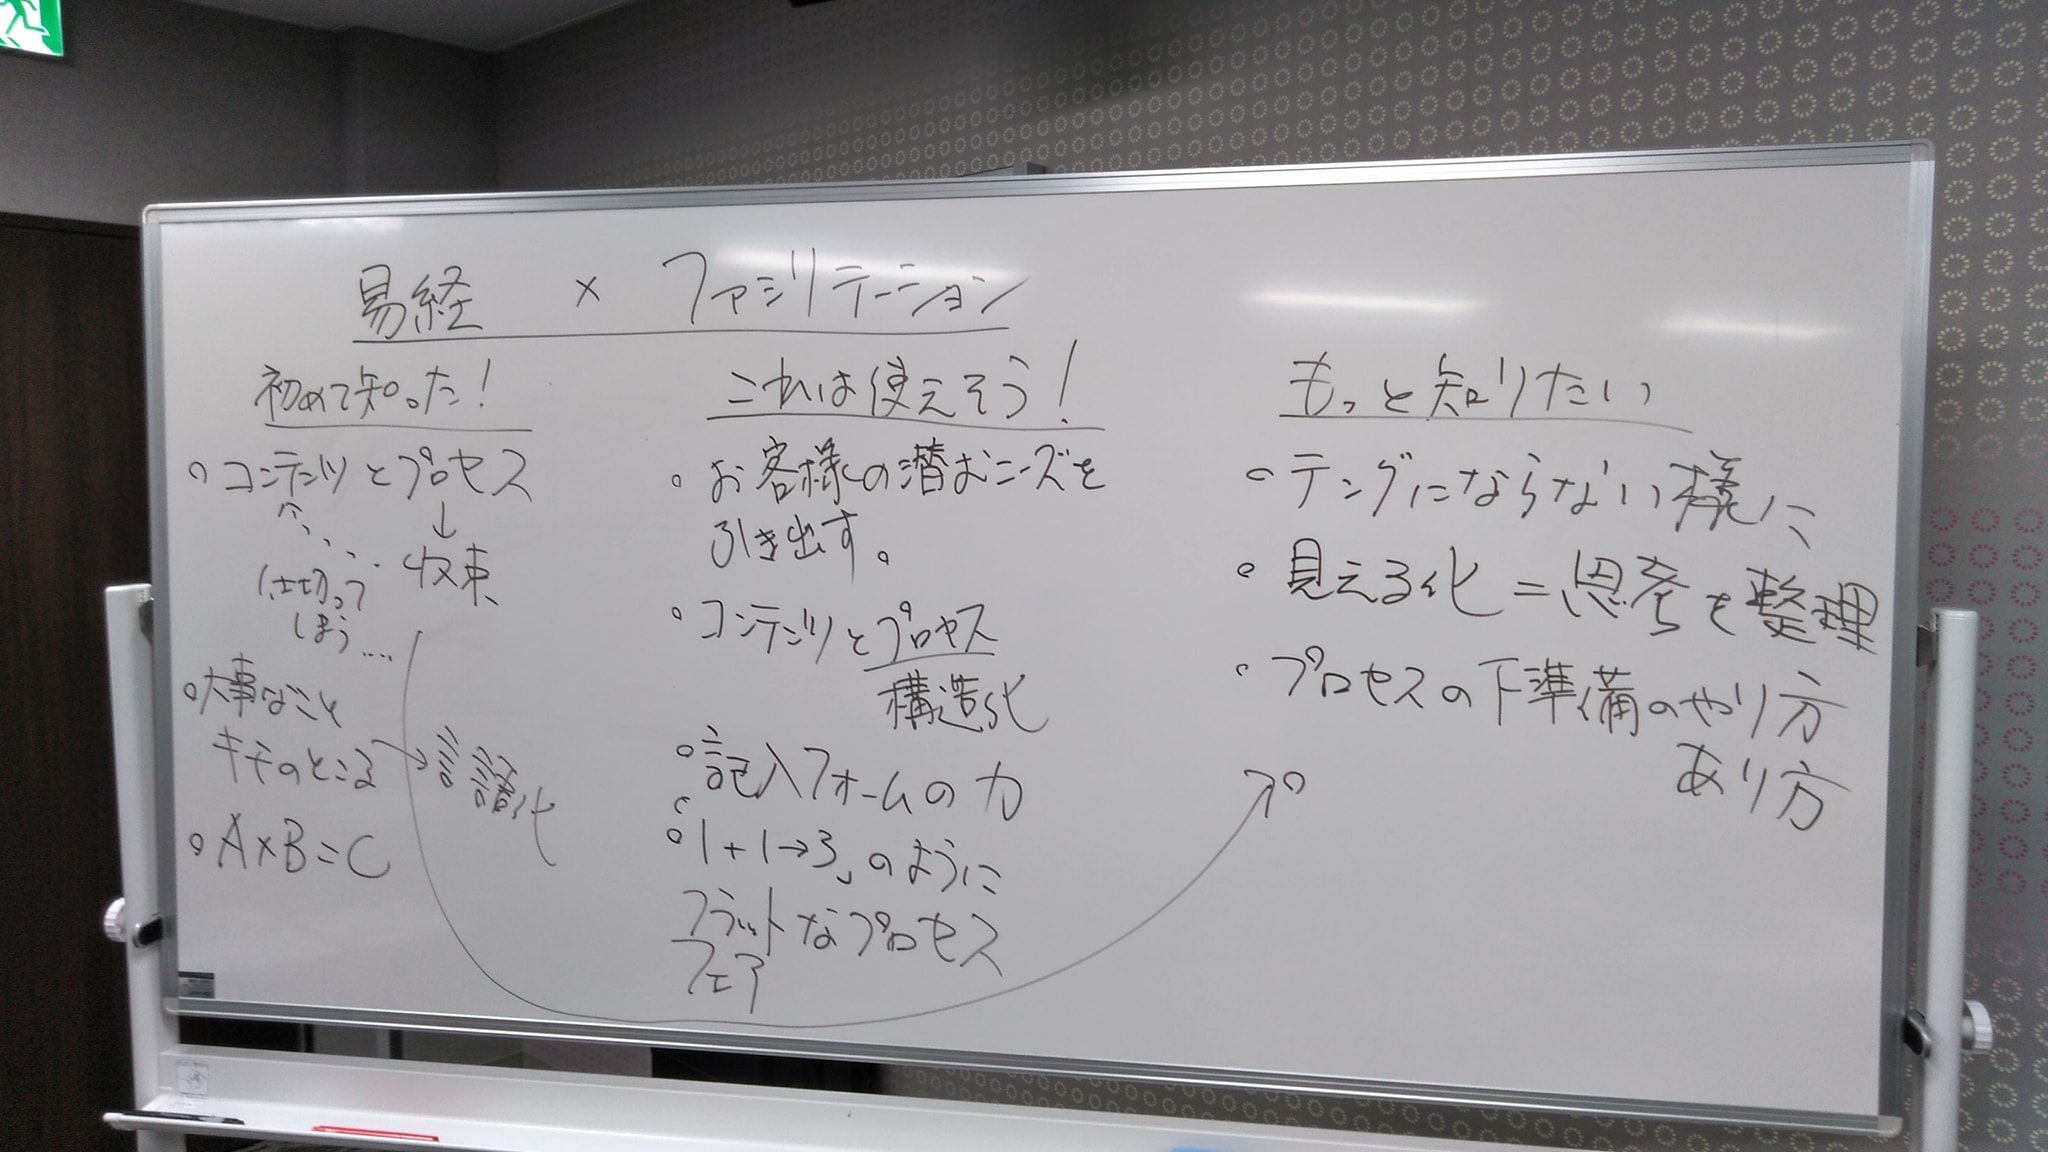 易経 × ファシリテーション
初めて知った!
。コンテンツとプロセス
↓
収束
仕切って
しまう....
。大事なこと
キモのところ → 言語化
。A×B=C
これは使えそう!
。お客様の潜むニーズを
引き出す。
。コンテンツとプロセス
構造化
。記入フォームの力
。「1+1→3」のように
フラットなプロセス
フェア
もっと知りたい
。テングにならない様に
。見える化=思考を整理
。プロセスの下準備のやり方
あり方